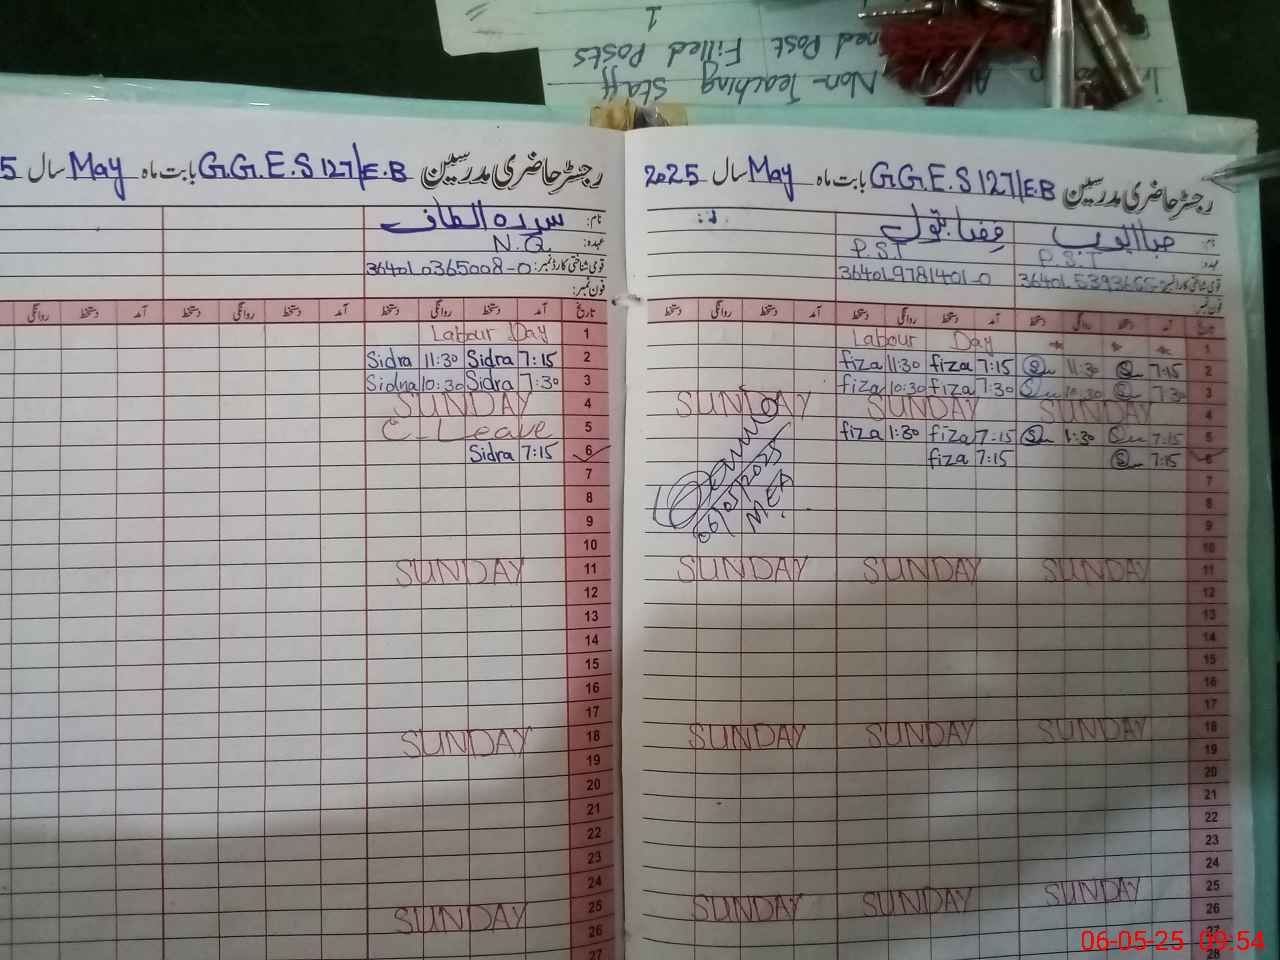 Non-Teaching Staff
ned Post Filled Posts
1
رجسٹر حاضری مدرسین G.G.E.S 127/E.B بابت ماہ May سال 2025
نام: صبا ایوب
عہدہ: P.S.T
فضا بتول
P.S.T
36401-9781401-0
فون نمبر
تاریخ آمد دستخط روانگی دستخط آمد دستخط روانگی دستخط آمد دستخط دستخط
1 Labour Day
2 7:15 11:30 7:15 fiza 11:30 fiza
3 7:30 10:30 7:30 fiza 10:30 fiza
4 SUNDAY SUNDAY SUNDAY
5 7:15 1:30 7:15 fiza 1:30 fiza
6 7:15 7:15 fiza
06/05/2025
M.EA
7
8
9
10
11 SUNDAY SUNDAY SUNDAY
12
13
14
15
16
17
18 SUNDAY SUNDAY SUNDAY
19
20
21
22
23
24
25 SUNDAY SUNDAY SUNDAY
26
27
28
رجسٹر حاضری مدرسین G.G.E.S 127/E.B بابت ماہ May سال 5
نام: سدرہ الطاف
عہدہ: N.Q
قومی شناختی کارڈ نمبر: 36401-0365008-0
فون نمبر:
تاریخ آمد دستخط روانگی دستخط آمد دستخط روانگی دستخط آمد دستخط روانگی
1 Labour Day
2 7:15 Sidra 11:30 Sidra
3 7:30 Sidra 10:30 Sidra
4 SUNDAY
5 C-Leave
6 7:15 Sidra
7
8
9
10
11 SUNDAY
12
13
14
15
16
17
18 SUNDAY
19
20
21
22
23
24
25 SUNDAY
26
27
06-05-25 09:54